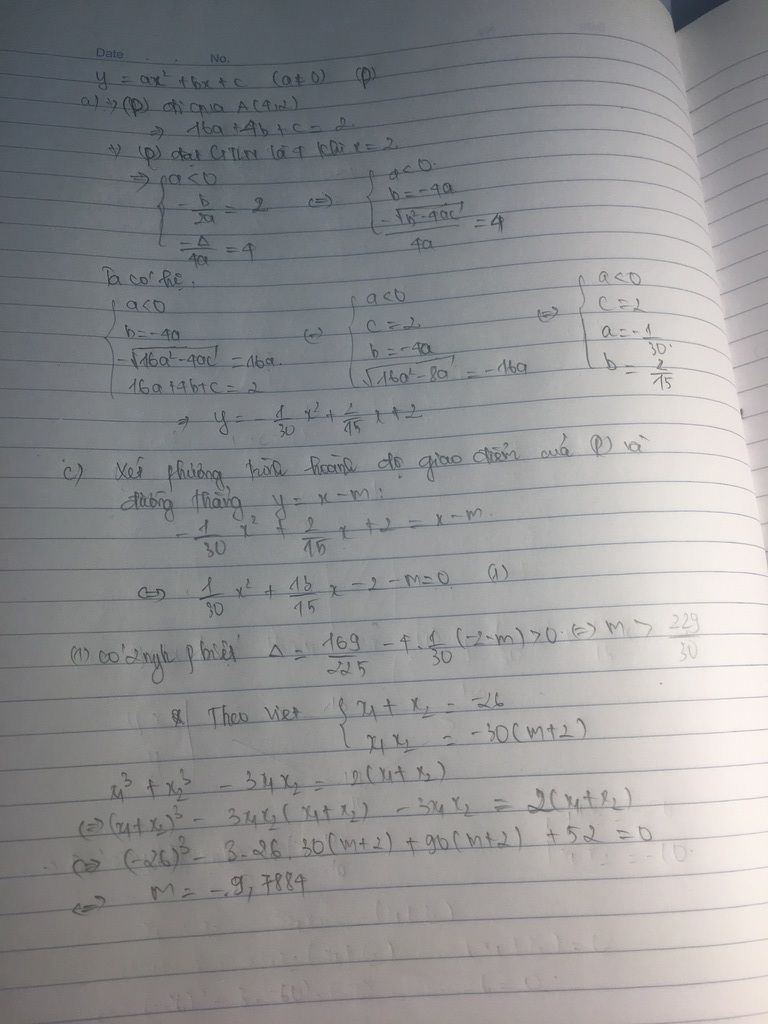 Date No.
y = ax² + bx + c (a ≠ 0) (P)
a) → (P) đi qua A(4;2)
⇒ 16a + 4b + c = 2
→ (P) đạt GTLN là 4 khi x = 2
⇒ { a < 0 ; -b/2a = 2 ; -Δ/4a = 4 ⇔ { a < 0 ; b = -4a ; -√(b² - 4ac)/4a = 4
Ta có hệ:
{ a < 0 ; b = -4a ; -√(16a² - 4ac) = 16a ; 16a + 4b + c = 2 ⇔ { a < 0 ; c = 2 ; b = -4a ; √(16a² - 8a) = -16a ⇔ { a < 0 ; c = 2 ; a = -1/30 ; b = 2/15
⇒ y = -1/30 x² + 2/15 x + 2
c) Xét phương trình hoành độ giao điểm của (P) và
đường thẳng y = x - m:
-1/30 x² + 2/15 x + 2 = x - m
⇔ 1/30 x² + 13/15 x - 2 - m = 0 (1)
(1) có 2 ngh p biệt Δ = 169/225 - 4 · 1/30 (-2 - m) > 0 ⇔ m > 229/30
Theo Viet { x₁ + x₂ = -26 ; x₁x₂ = -30(m+2)
x₁³ + x₂³ - 3x₁x₂ = 2(x₁ + x₂)
⇔ (x₁ + x₂)³ - 3x₁x₂(x₁ + x₂) - 3x₁x₂ = 2(x₁ + x₂)
⇔ (-26)³ - 3.26.30(m+2) + 90(m+2) + 52 = 0
⇔ m = -9,7884